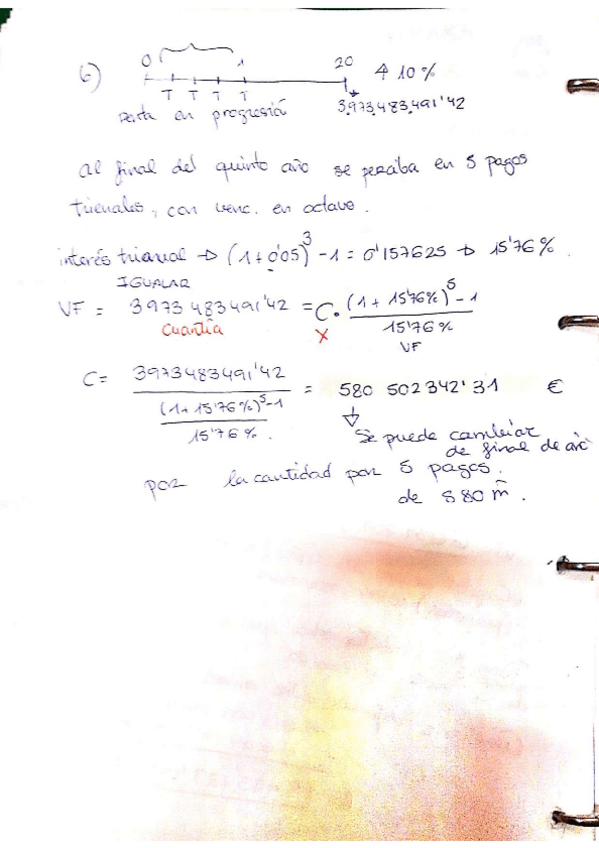 6) 0 1 20 ↑ 10%
T T T T
Renta en progresión 3.973.483.491'42
al final del quinto año se percibía en 5 pagos
trienales, con venc. en octavo.
interés trianual → (1+0'05)³ - 1 = 0'157625 → 15'76%.
IGUALAR
VF = 3973 483491'42 = C. (1 + 15'76%)⁵ - 1
15'76%
Cuantía X VF
C = 3973483491'42 = 580 502342'31 €
(1+15'76%)⁵-1
15'76%.
Se puede cambiar
de final de
por la cantidad por 5 pagos.
de 580 m.